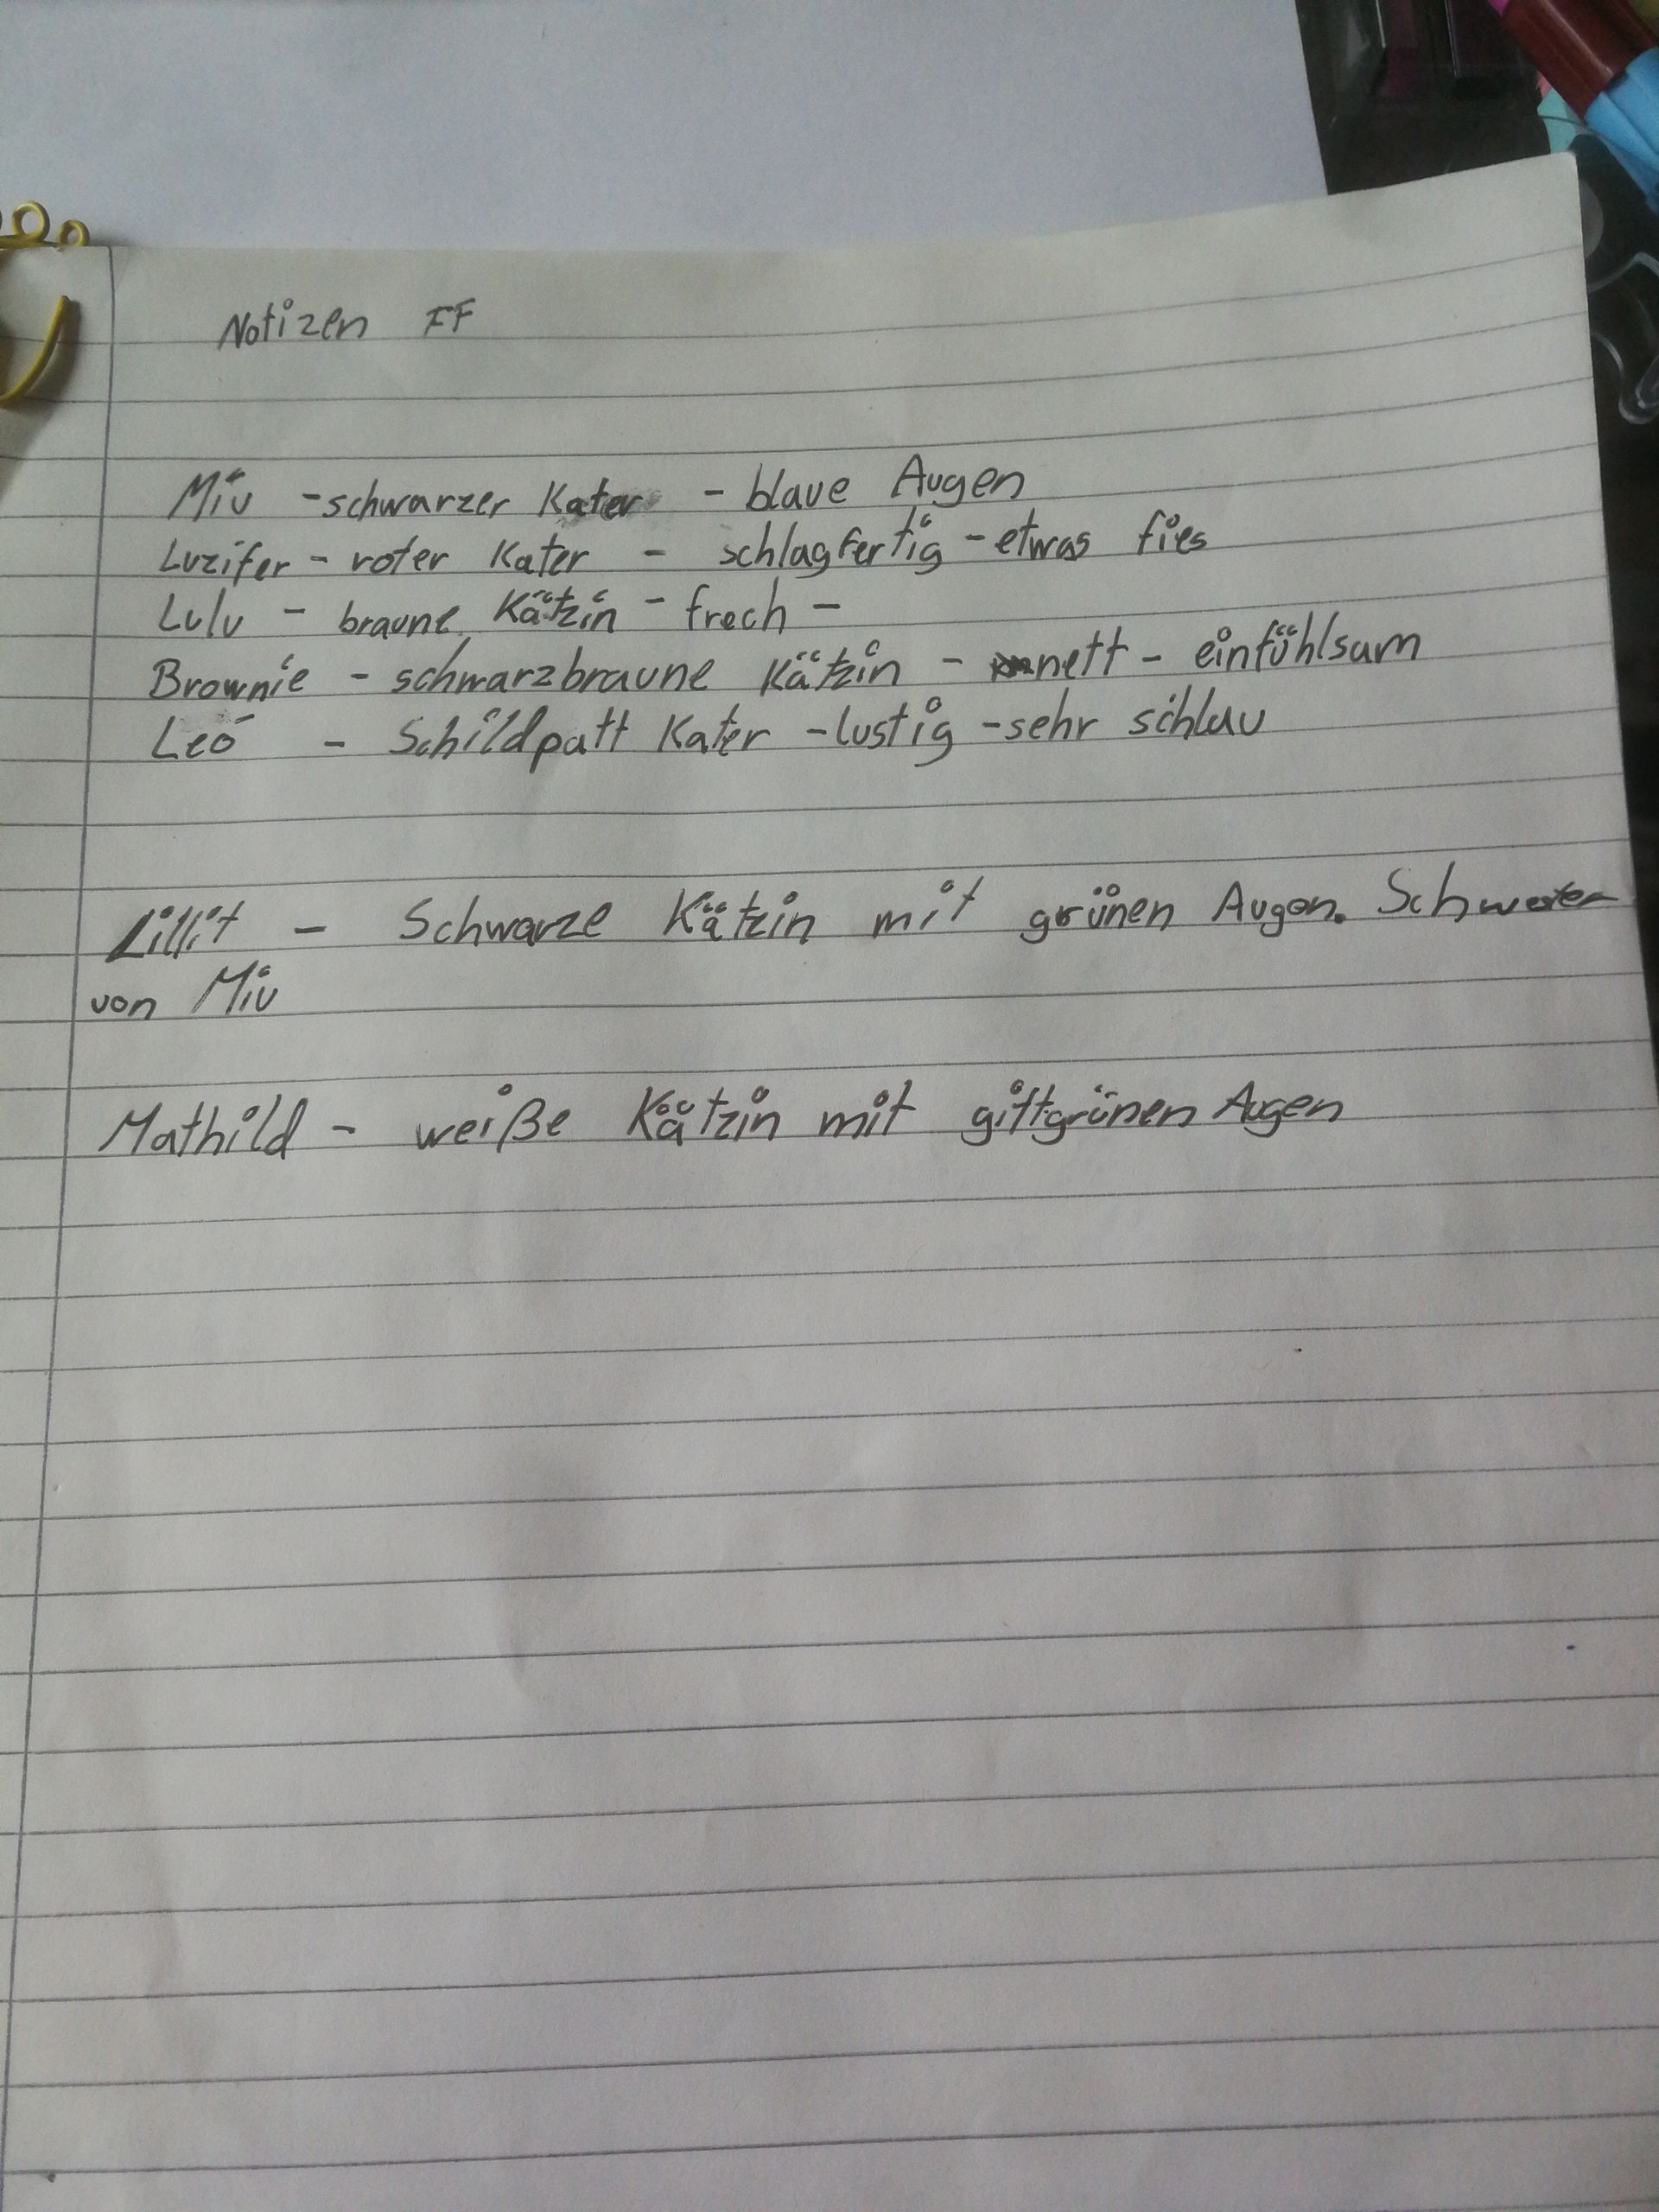 Notizen FF
Miu - schwarzer Kater - blaue Augen
Luzifer - roter Kater - schlagfertig - etwas fies
Lulu - braune Kätzin - frech -
Brownie - schwarzbraune Kätzin - nett - einfühlsam
Leo - Schildpatt Kater - lustig - sehr schlau
Lillit - Schwarze Kätzin mit grünen Augen. Schwester
von Miu
Mathild - weiße Kätzin mit giftgrünen Augen